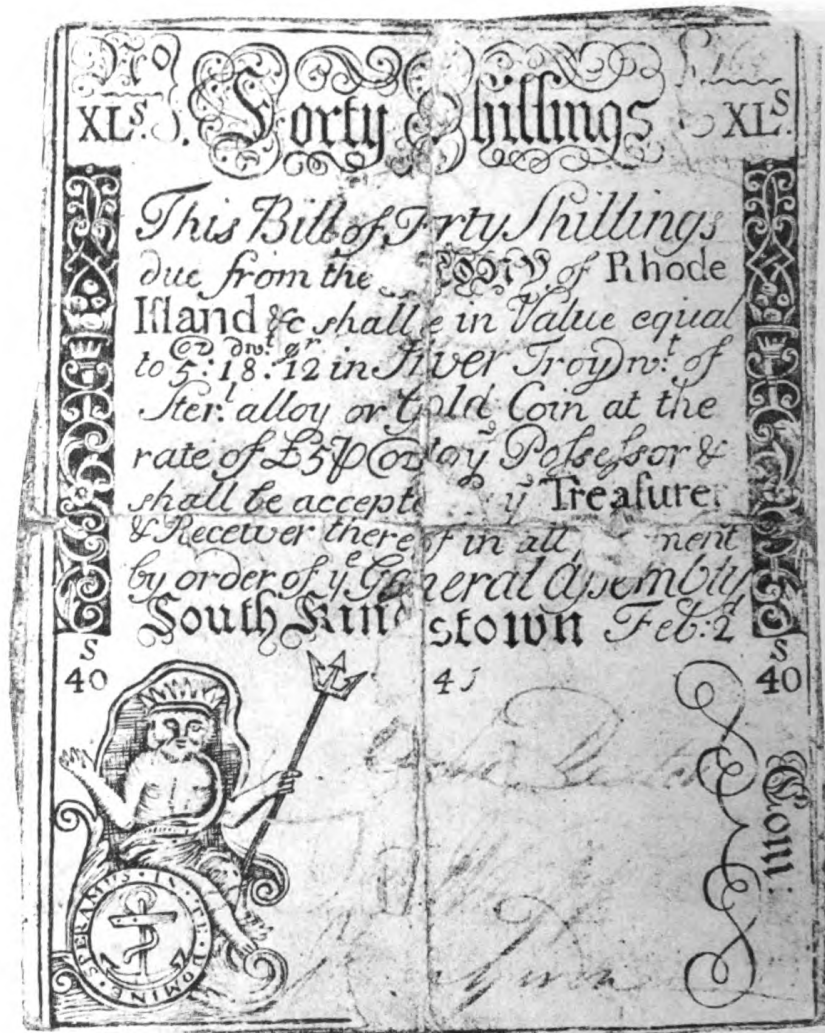 No
XLS. Forty Shillings XLS.
This Bill of F rty Shillings
due from the of Rhode
Island &c shall e in Value equal
to 5: 18: 12 in Silver Troy wt. of
oz dwt gr
Ster.l alloy or Gold Coin at the
rate of £5 P oz to yͤ Possessor &
shall be accept y Treasurer
& Receiver there f in all nent
by order of yͤ General Assembly
South Kin stown Feb: 2d
S
40
S
40
Com:
SPERAMUS · IN · TE · DOMINE